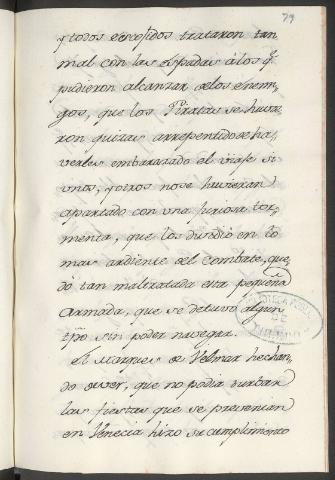 79
y todos escojidos trataron tan
mal con las espadas a los q.
pudieron alcanzar de los Enemi-
gos, que los Piratas se huvie-
ron quizas arrepentido de ha-
verles embarazado el viaje si
unos, y otros no se huvieran
apartado con una furiosa tor-
menta, que los dividió en lo
mas ardiente del combate, que-
dó tan maltratada esta pequeña
Armada, que se detuvo algun
tpõ sin poder navegar.
El Marques de Velmar hechan-
do de ver, que no podia turbar
las fiestas que se prevenian
en Venecia hizo su cumplimento